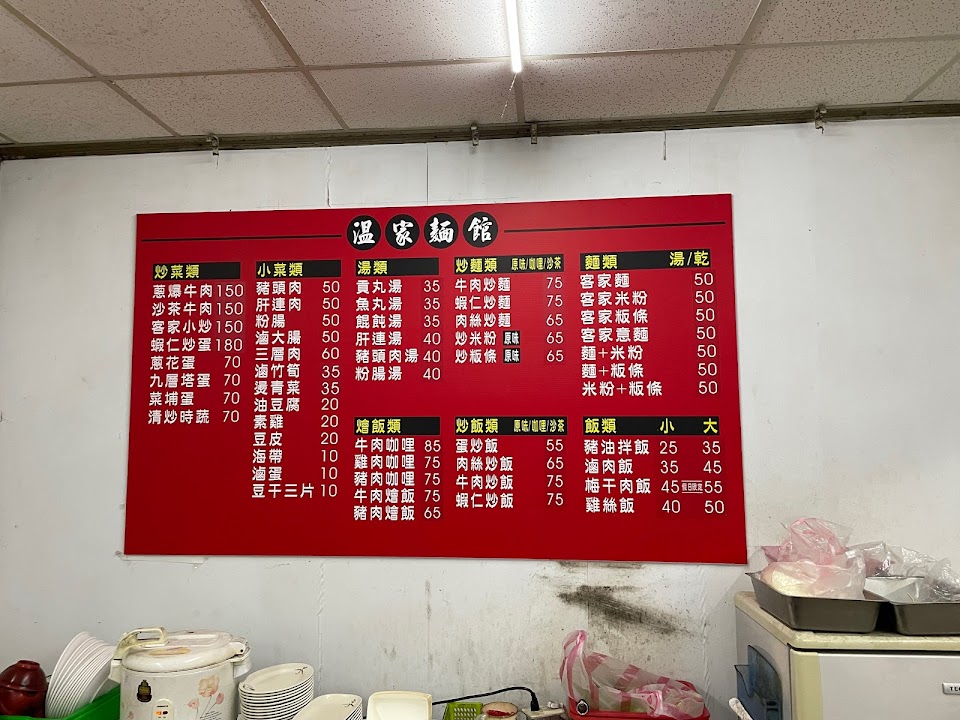 溫家麵館
炒菜類
蔥爆牛肉 150
沙茶牛肉 150
客家小炒 150
蝦仁炒蛋 180
蔥花蛋 70
九層塔蛋 70
菜埔蛋 70
清炒時蔬 70
小菜類
豬頭肉 50
肝連肉 50
粉腸 50
滷大腸 50
三層肉 60
滷竹筍 35
燙青菜 35
油豆腐 20
素雞 20
豆皮 20
海帶 10
滷蛋 10
豆干三片 10
湯類
貢丸湯 35
魚丸湯 35
餛飩湯 35
肝連湯 40
豬頭肉湯 40
粉腸湯 40
燴飯類
牛肉咖哩 85
雞肉咖哩 75
豬肉咖哩 75
牛肉燴飯 75
豬肉燴飯 65
炒麵類 原味/咖哩/沙茶
牛肉炒麵 75
蝦仁炒麵 75
肉絲炒麵 65
炒米粉 原味 65
炒粄條 原味 65
炒飯類 原味/咖哩/沙茶
蛋炒飯 55
肉絲炒飯 65
牛肉炒飯 75
蝦仁炒飯 75
麵類 湯/乾
客家麵 50
客家米粉 50
客家粄條 50
客家意麵 50
麵+米粉 50
麵+粄條 50
米粉+粄條 50
飯類 小 大
豬油拌飯 25 35
滷肉飯 35 45
梅干肉飯 45 假日限定 55
雞絲飯 40 50